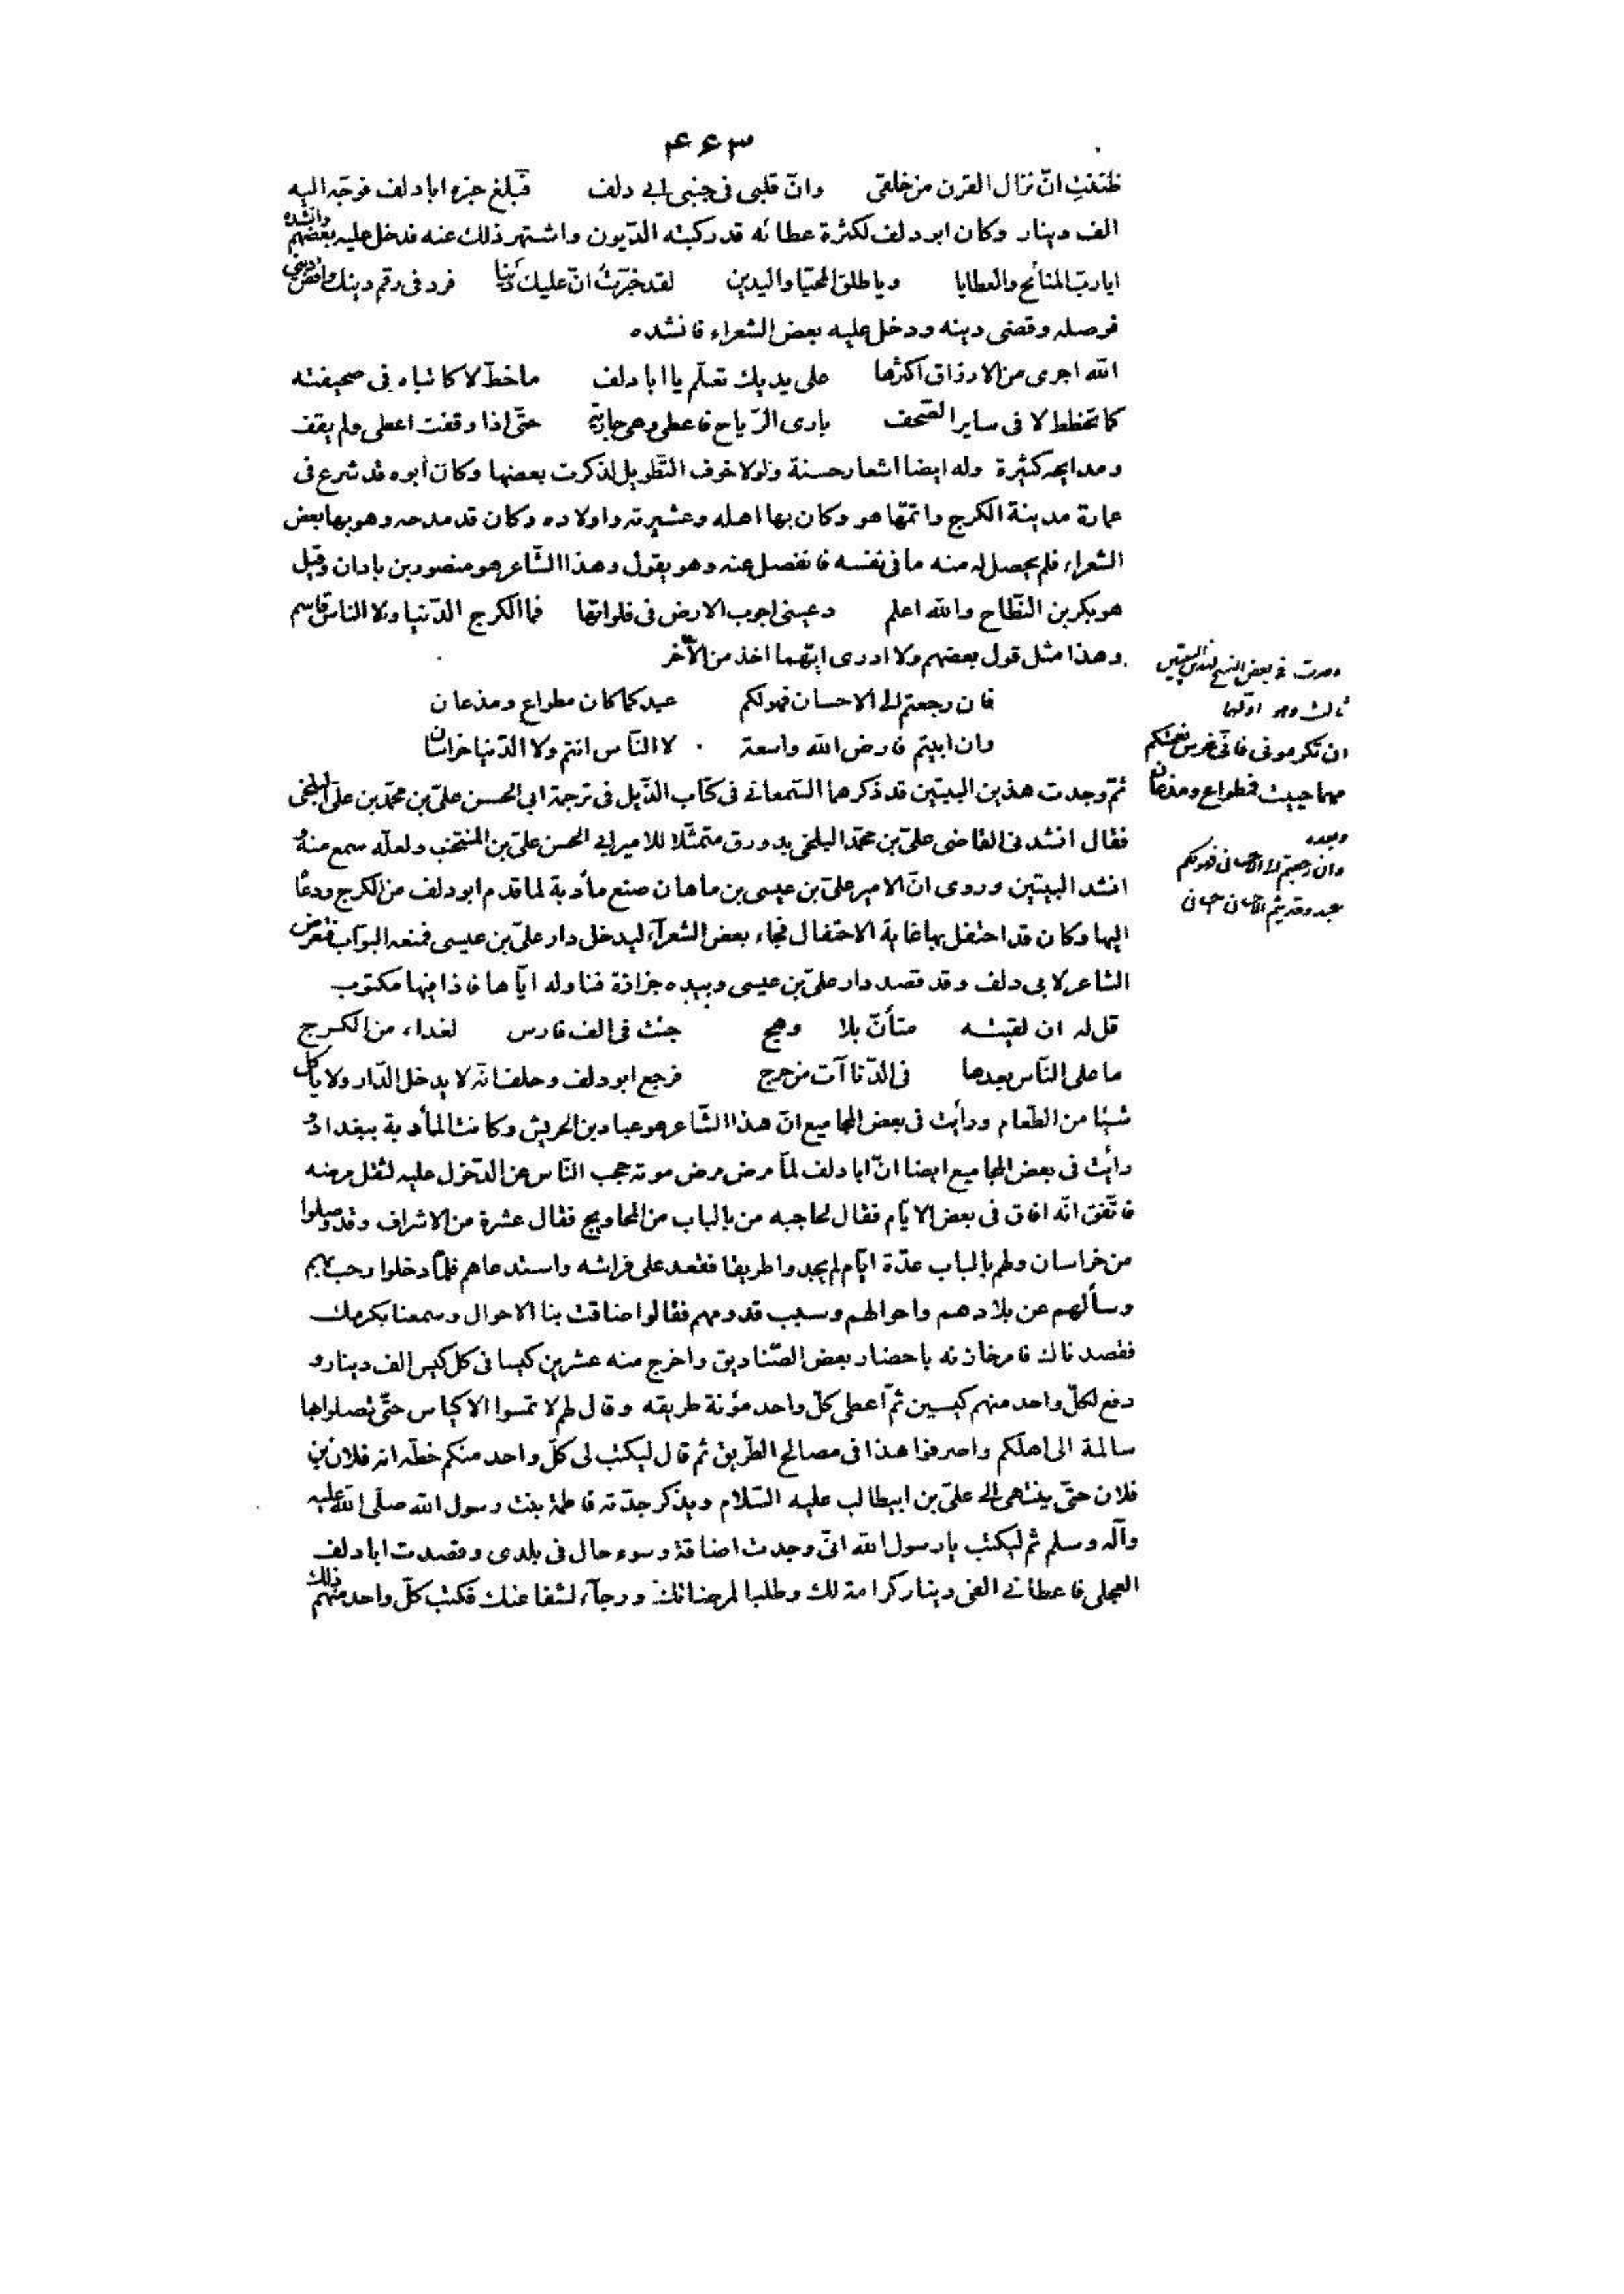 ۴۶۳
ظننت انّ نزال القرن من خلقى وانّ قلبى فى جنبى ابى دلف فبلغ خبره ابا دلف فوجّه اليه
الف دينار وكان ابو دلف لكثرة عطائه قد ركبته الدّيون واشتهر ذلك عنه فدخل عليه بعضهم وانشده
ايا ربّ المنائح والعطايا ويا طلق المحيّا واليدين لقد خبّرت انّ عليك دينا فزد فى رقم دينك واقض دينى
فوصله وقضى دينه ودخل عليه بعض الشعراء فانشده
الله اجرى من الارزاق اكثرها على يديك تعلّم يا ابا دلف ما خطّ لا كاتباه فى صحيفته
كما تخطط لا فى ساير الصّحف بارى الرّياح فاعطى وهى جارية حتّى اذا وقفت اعطى ولم يقف
ومدايحه كثيرة وله ايضا اشعار حسنة ولولا خوف التّطويل لذكرت بعضها وكان ابوه قد شرع فى
عمارة مدينة الكرج واتمّها هو وكان بها اهله وعشيرته واولاده وكان قد مدحه وهو بها بعض
الشعراء فلم يحصل له منه ما فى نفسه فانفصل عنه وهو يقول وهذا الشّاعر هو منصور بن بادان وقيل
هو بكر بن النّطاح والله اعلم دعينى اجوب الارض فى فلواتها فما الكرج الدّنيا ولا الناس قاسم
وهذا مثل قول بعضهم ولا ادرى ايّهما اخذ من الآخر
فان رجعتم الى الاحسان فهو لكم عبد كما كان مطواع ومذعان
وان ابيتم فارض الله واسعة لا النّاس انتم ولا الدّنيا خراسان
ثمّ وجدت هذين البيتين قد ذكرهما السّمعانى فى كتاب الذّيل فى ترجمة ابى الحسن علىّ بن محمّد بن على البلخى
فقال انشدنى القاضى علىّ بن محمّد البلخى بدورق متمثّلا للامير ابى الحسن علىّ بن المنتخب ولعلّه سمع منه و
انشد البيتين وروى انّ الامير علىّ بن عيسى بن ماهان صنع مأدبة لما قدم ابو دلف من الكرج ودعا
اليها وكان قد احتفل بها غاية الاحتفال فجاء بعض الشعرآء ليدخل دار علىّ بن عيسى فمنعه البوّاب فتعرض
الشاعر لابى دلف وقد قصد دار علىّ بن عيسى وبيده جزازة فناوله ايّاها فاذا فيها مكتوب
قل له ان لقيته متأنّ بلا وهج جئت فى الف فارس لغداء من الكرج
ما على النّاس بعدها فى الدّناآت من حرج فرجع ابو دلف وحلف انّه لا يدخل الدّار ولا يأكل
شيئا من الطّعام ورأيت فى بعض المجاميع انّ هذا الشّاعر هو عباد بن الحريش وكانت المأدبة ببغداد و
رأيت فى بعض المجاميع ايضا انّ ابا دلف لمّا مرض مرض موته حجب النّاس عن الدّخول عليه لثقل مرضه
فاتّفق انّه افاق فى بعض الايّام فقال لحاجبه من بالباب من المحاويج فقال عشرة من الاشراف وقد وصلوا
من خراسان ولهم بالباب عدّة ايّام لم يجدوا طريقا فقعد على فراشه واستدعاهم فلمّا دخلوا رحب بهم
وسألهم عن بلادهم واحوالهم وسبب قدومهم فقالوا ضاقت بنا الاحوال وسمعنا بكرمك
فقصدناك فامر خازنه باحضار بعض الصّناديق واخرج منه عشرين كيسا فى كل كيس الف دينار و
دفع لكلّ واحد منهم كيسين ثمّ اعطى كلّ واحد مؤنة طريقه وقال لهم لا تمسوا الاكياس حتّى تصلوا بها
سالمة الى اهلكم واصرفوا هذا فى مصالح الطّريق ثم قال ليكتب لى كلّ واحد منكم خطّه انه فلان بن
فلان حتّى ينتهى الى علىّ بن ابيطالب عليه السّلام ويذكر جدّته فاطمة بنت رسول الله صلّى الله عليه
وآله وسلم ثم ليكتب يا رسول الله انّى وجدت اضاقة وسوء حال فى بلدى وقصدت ابا دلف
العجلى فاعطانى الفى دينار كرامة لك وطلبا لمرضاتك ورجآء لشفاعتك فكتب كلّ واحد منهم ذلك
وجدت فى بعض النسخ لهذين البيتين
ثالث وهو اوّلهما
ان تكرمونى فانّى غرس نعمتكم
مهما حييت فمطواع ومذعان
وبعده
وان رجعتم الى الاحسان فهو لكم